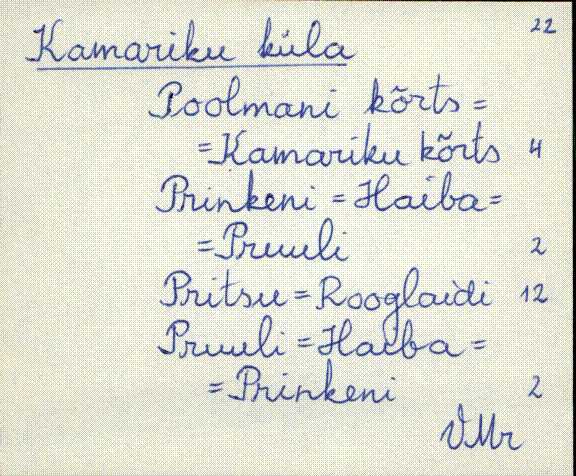 22
Kamariku küla
Poolmani kõrts =
= Kamariku kõrts 4
Prinkeni = Haiba =
= Pruuli 2
Pritsu = Rooglaidi 12
Pruuli = Haiba =
= Prinkeni 2
VMr